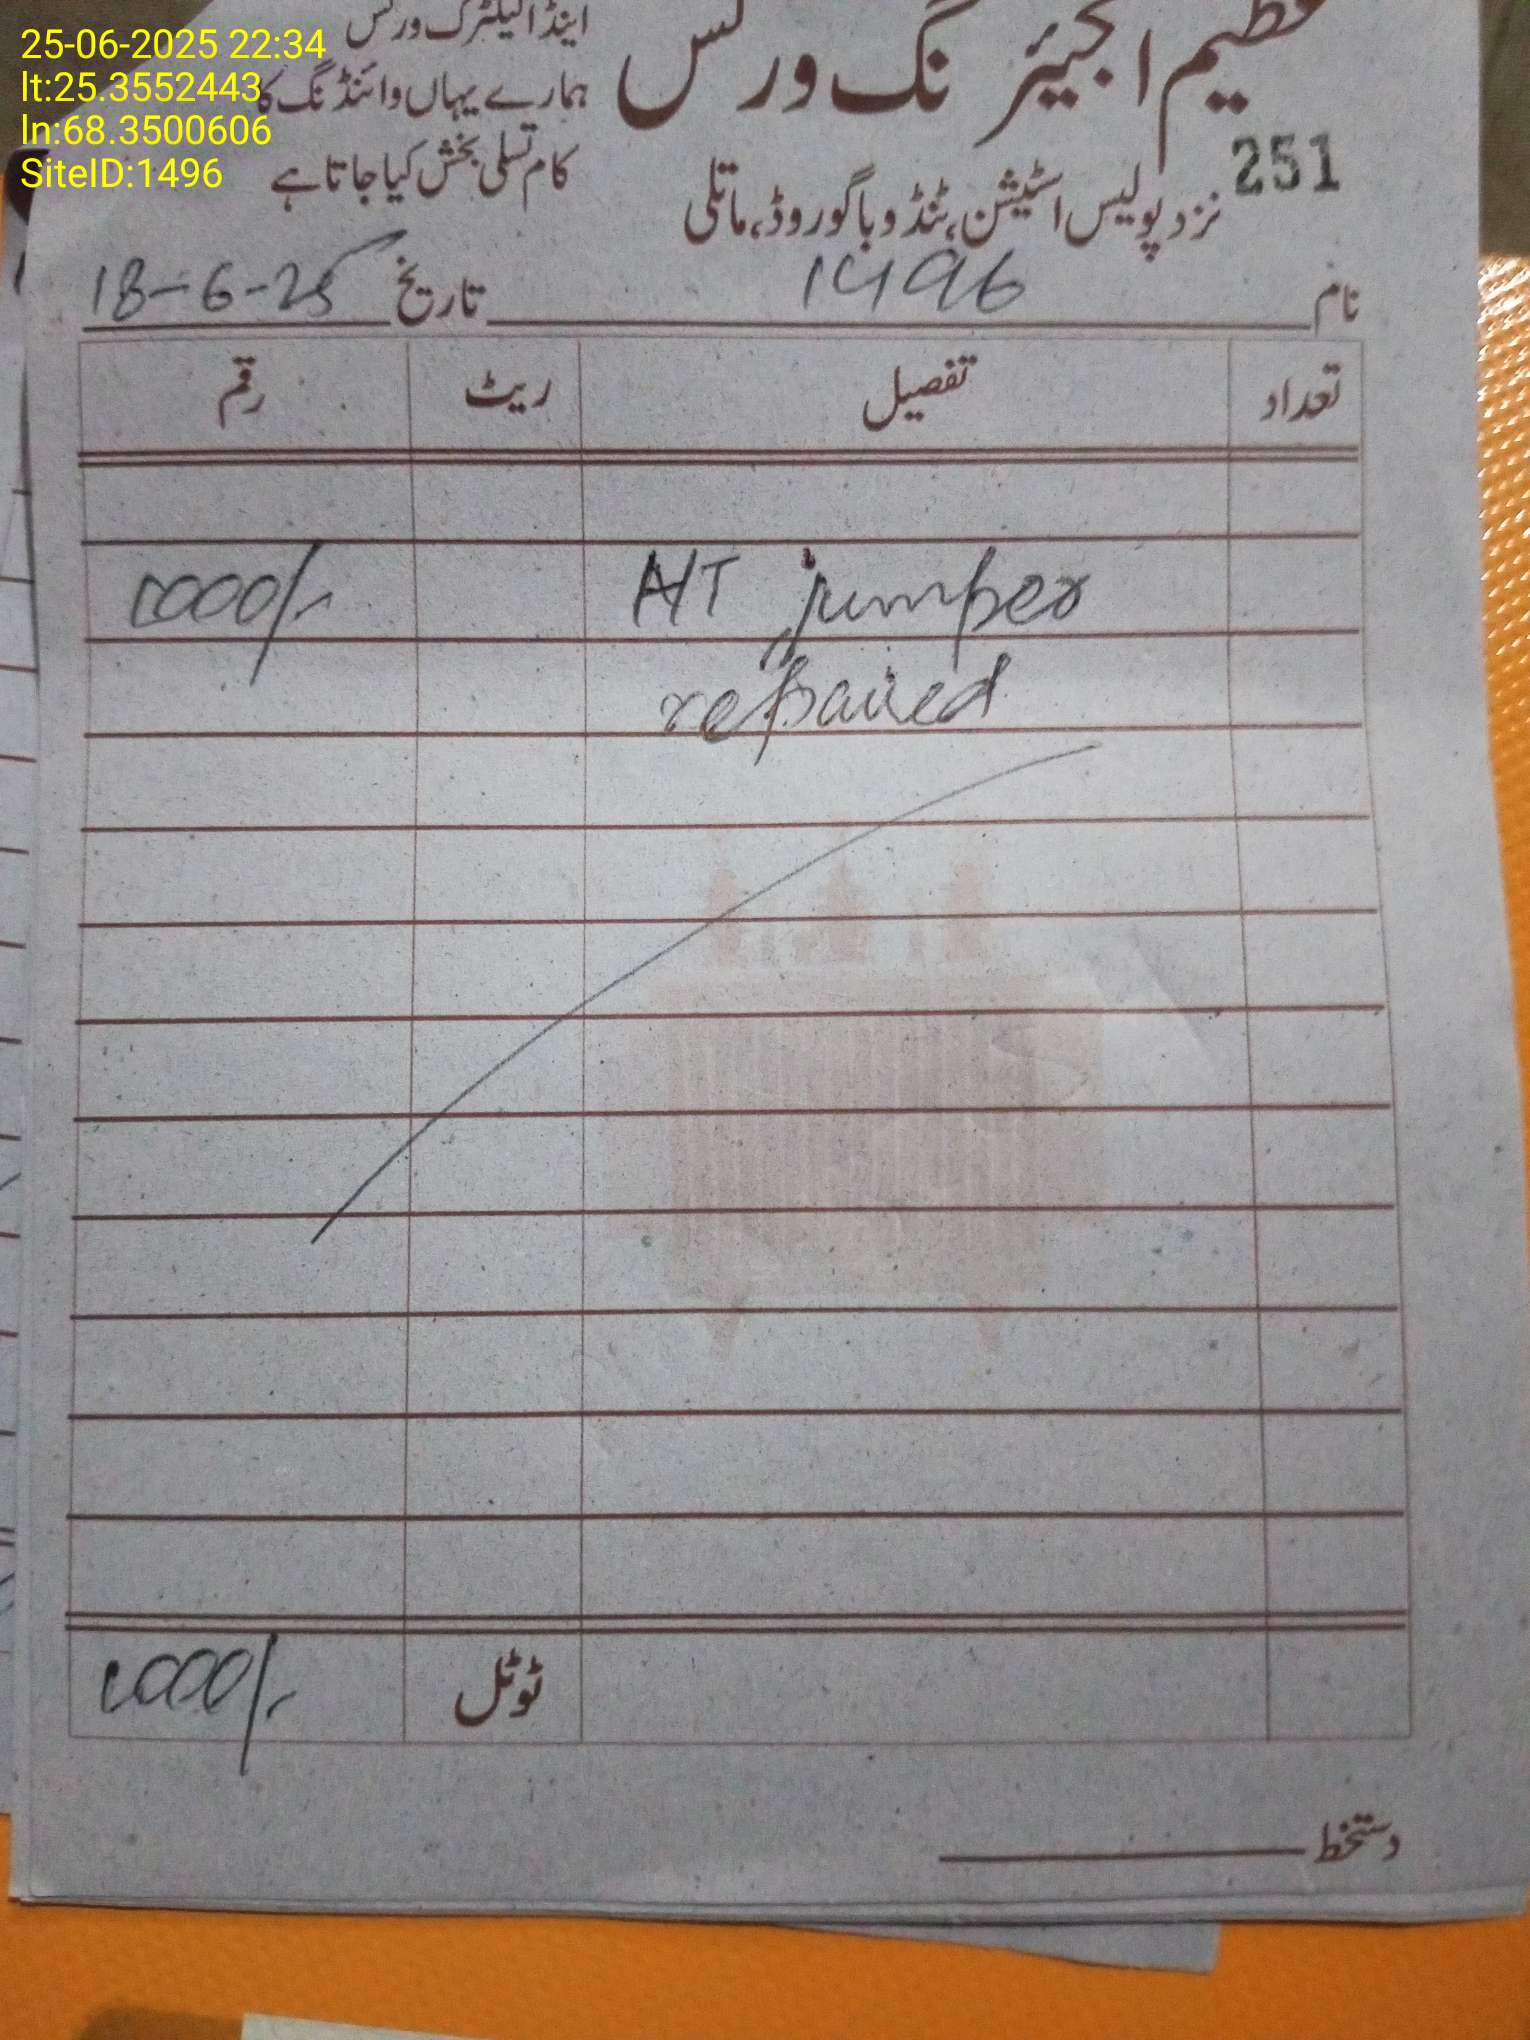 25-06-2025 22:34
lt:25.3552443
ln:68.3500606
SiteID:1496
عظیم انجینئرنگ ورکس
اینڈ الیکٹرک ورکس
ہمارے یہاں وائنڈنگ کا
کام تسلی بخش کیا جاتا ہے
251
نزد پولیس اسٹیشن، ٹنڈو باگو روڈ، ماتلی
نام 1496 تاریخ 18-6-25
تعداد تفصیل ریٹ رقم
H/T jumper 1000/-
repaired
ٹوٹل 1000/-
دستخط